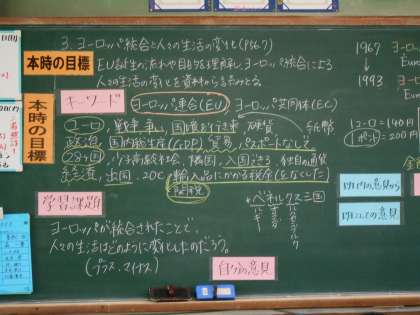 3. ヨーロッパ統合と人々の生活の変化(P56.7)
本時の目標
EU誕生の流れや目的を理解し、ヨーロッパ統合による
人々の生活の変化を資料からよみとる。
キーワード
ヨーロッパ連合(EU)
ヨーロッパ共同体(EC)
ユーロ, 戦争, 国境を行き来
硬貨
紙幣
政治, 国内総生産(GDP), 貿易, パスポートなしで
28ヶ国, 少子高齢社会, 隣国, 入国できる, 独自の通貨
経済, 出国, 20C, 輸入品にかかる税金(をなくした)
関税
*ベネルクス三国
ベルギー
オランダ
ルクセンブルク
本時の目標
学習課題
ヨーロッパが統合されたことで、
人々の生活はどのように変化したのだろう。
(プラス・マイナス)
自分の意見
1967
1993
1ユーロ=140円
200円